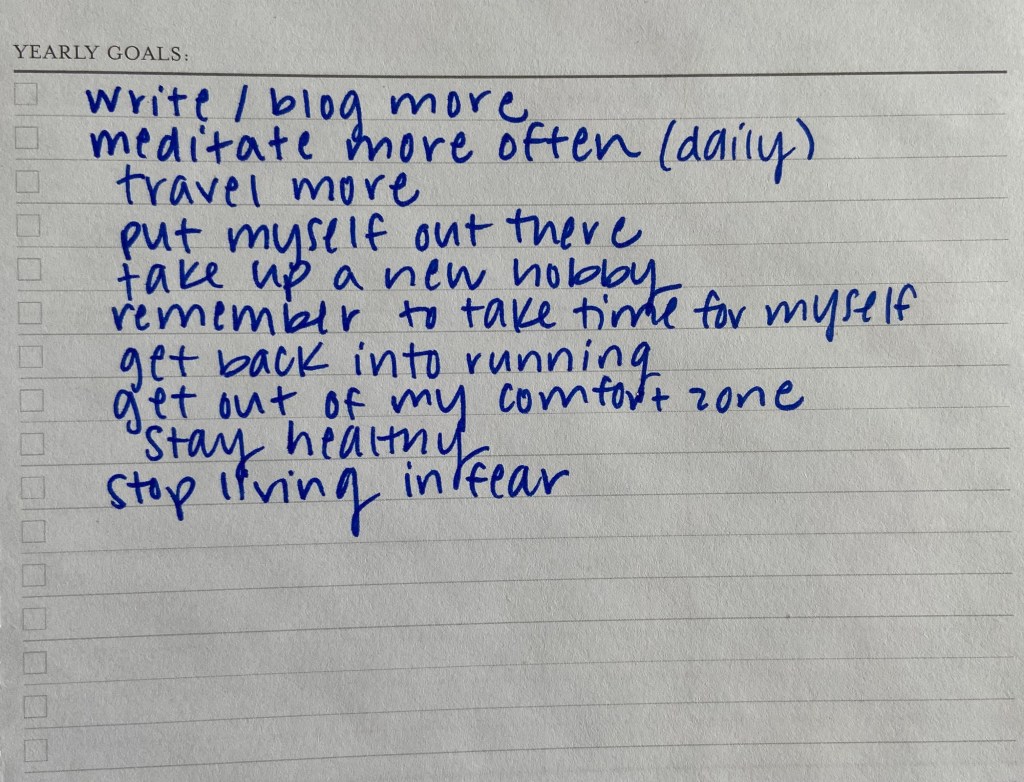 YEARLY GOALS:
write / blog more
meditate more often (daily)
travel more
put myself out there
take up a new hobby
remember to take time for myself
get back into running
get out of my comfort zone
stay healthy
stop living in fear